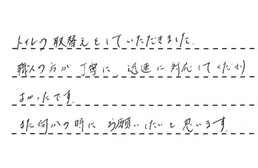 トイレの取替えをしていただきました。
職人の方が丁寧に迅速に対応してくださり
よかったです。
また何かの時にお願いしたいと思います。